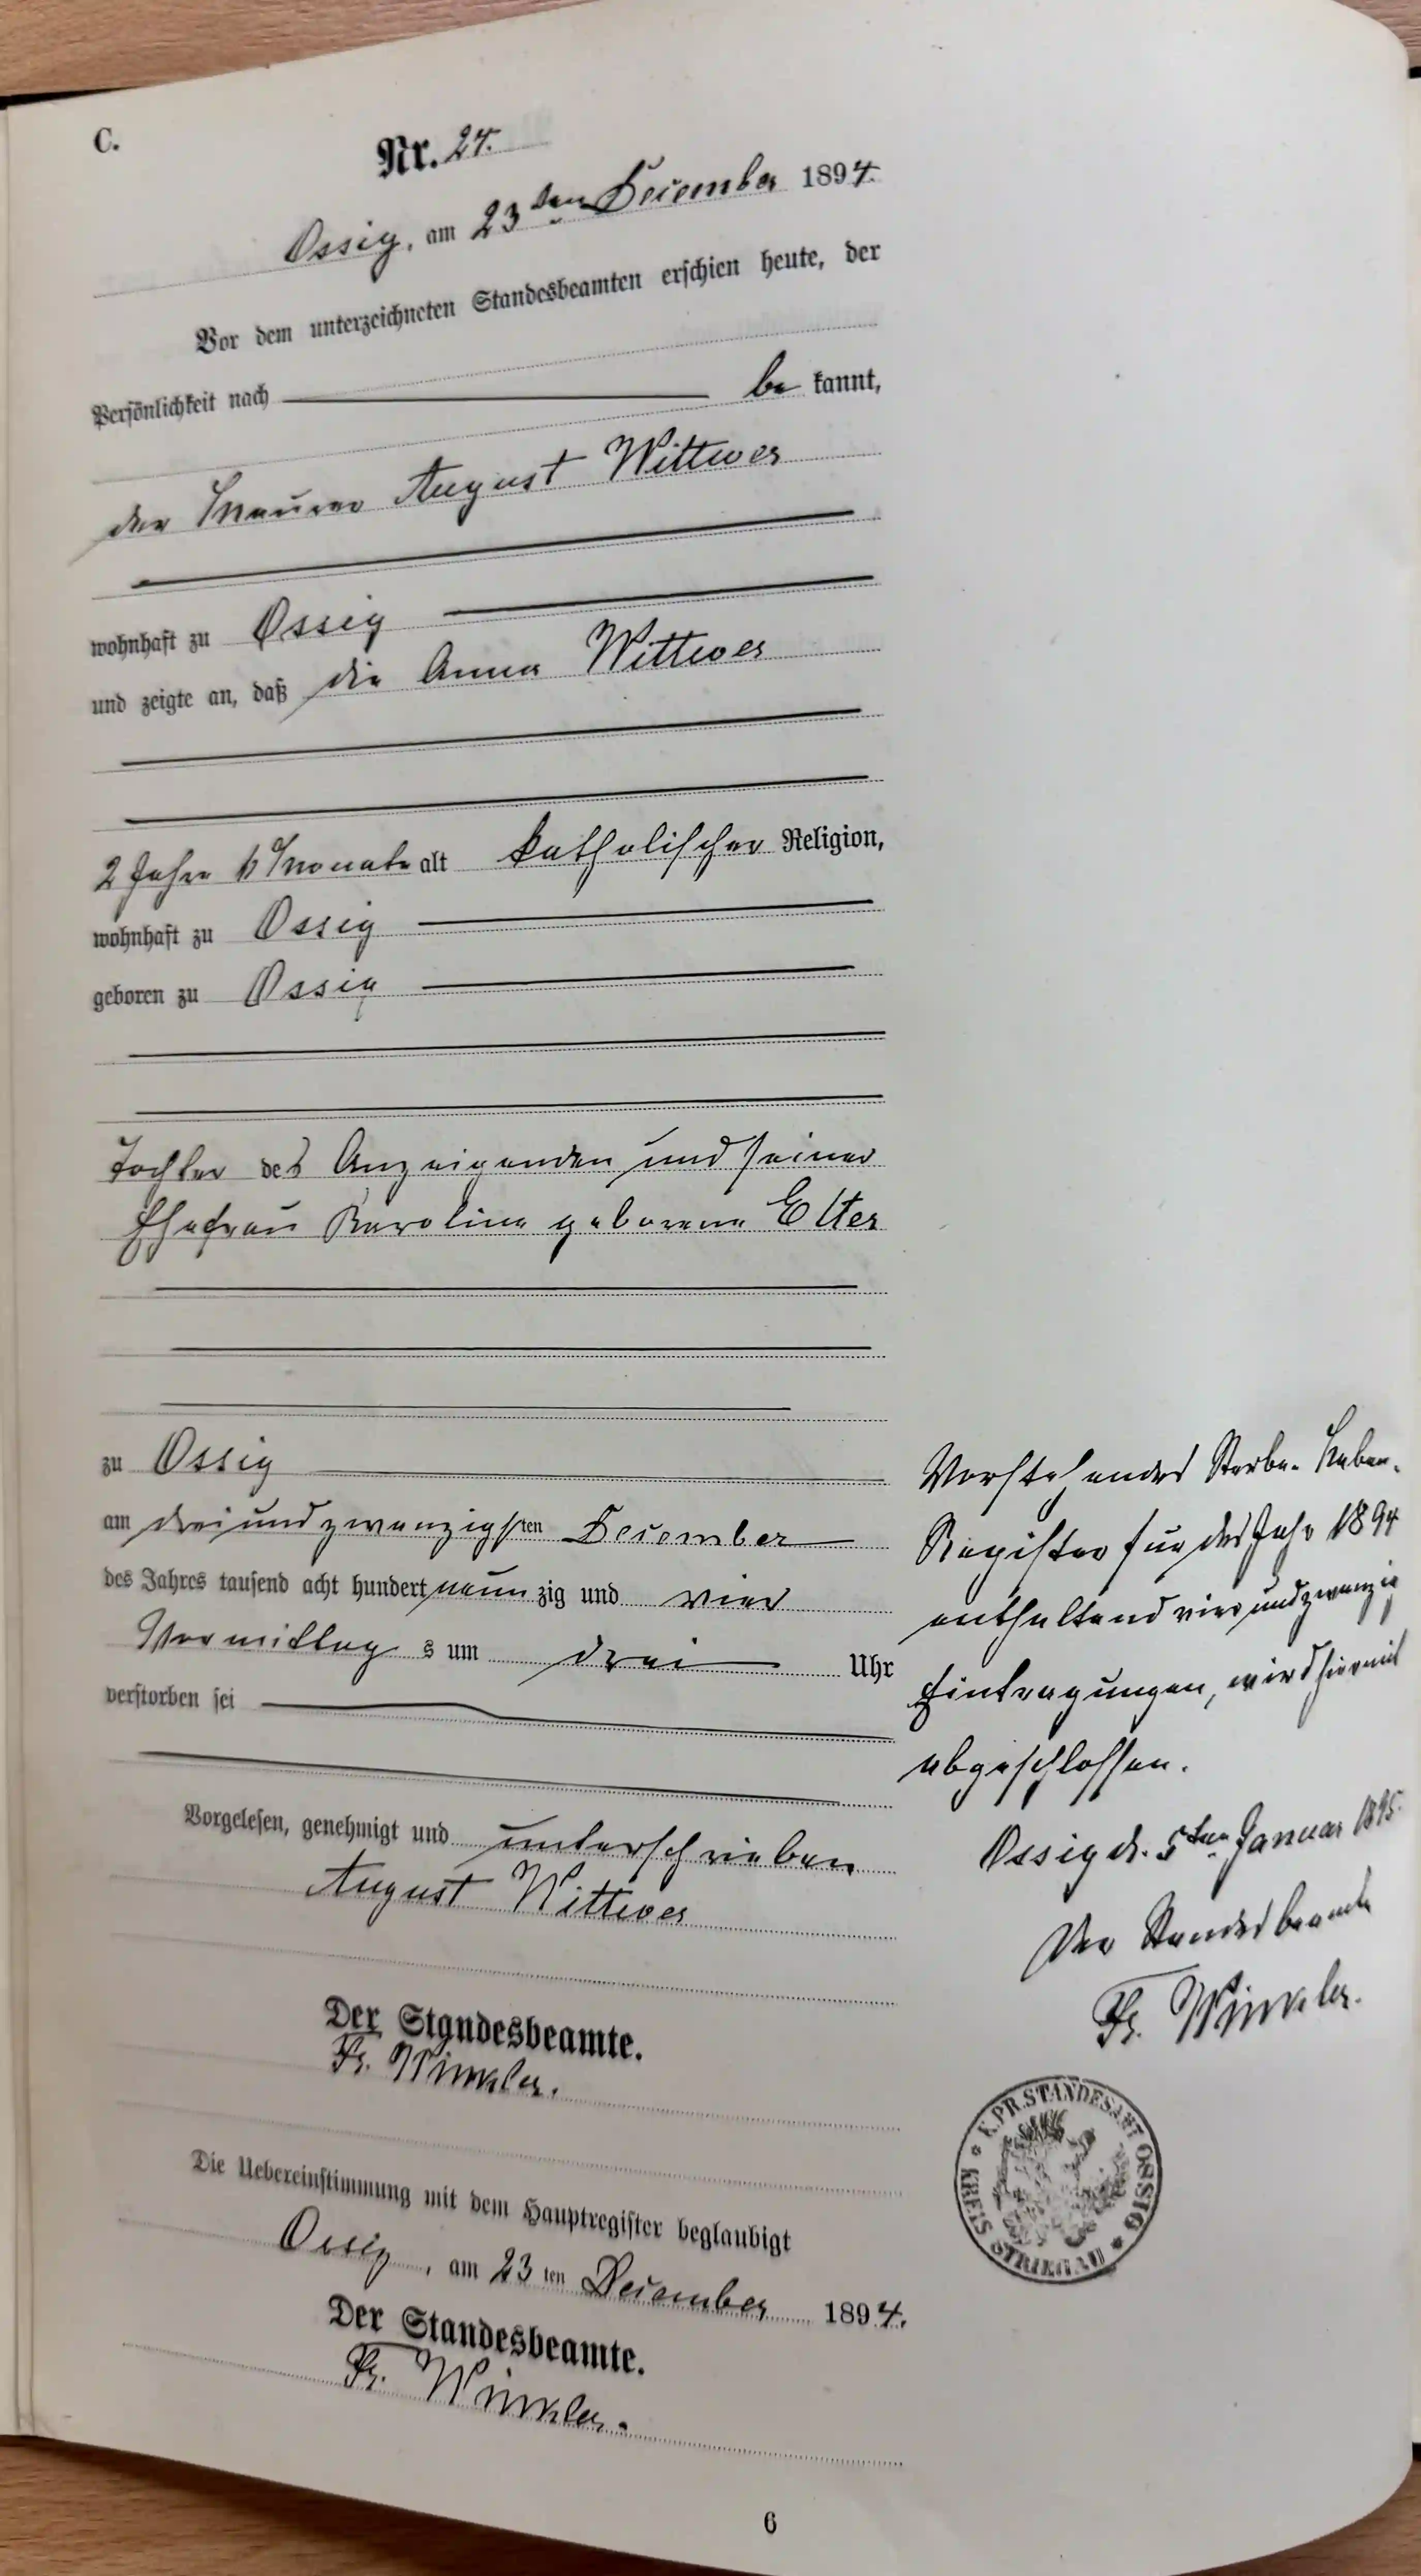 C.
Nr. 24.
Ossig, am 23ten December 1894.
Vor dem unterzeichneten Standesbeamten erschien heute, der
Persönlichkeit nach be kannt,
der Maurer August Wittwer
wohnhaft zu Ossig
und zeigte an, daß die Anna Wittwer
2 Jahre Monate alt katholischer Religion,
wohnhaft zu Ossig
geboren zu Ossig
Tochter des Anzeigenden und seiner
Ehefrau Karoline geborene Elter
zu Ossig
am dreiundzwanzigsten December
des Jahres tausend acht hundert neun zig und vier
Vormittag s um drei Uhr
verstorben sei
Vorgelesen, genehmigt und unterschrieben
August Wittwer
Der Standesbeamte.
Fr. Winkler.
Die Uebereinstimmung mit dem Hauptregister beglaubigt
Ossig, am 23 ten December 1894.
Der Standesbeamte.
Fr. Winkler.
6
Vorstehendes Sterbe-Neben-
Register für das Jahr 1894
enthaltend vierundzwanzig
Eintragungen, wird hiermit
abgeschlossen.
Ossig d. 5ten Januar 1895.
Der Standesbeamte
Fr. Winkler.
K. PR. STANDESAMT OSSIG
KREIS STRIEGAU